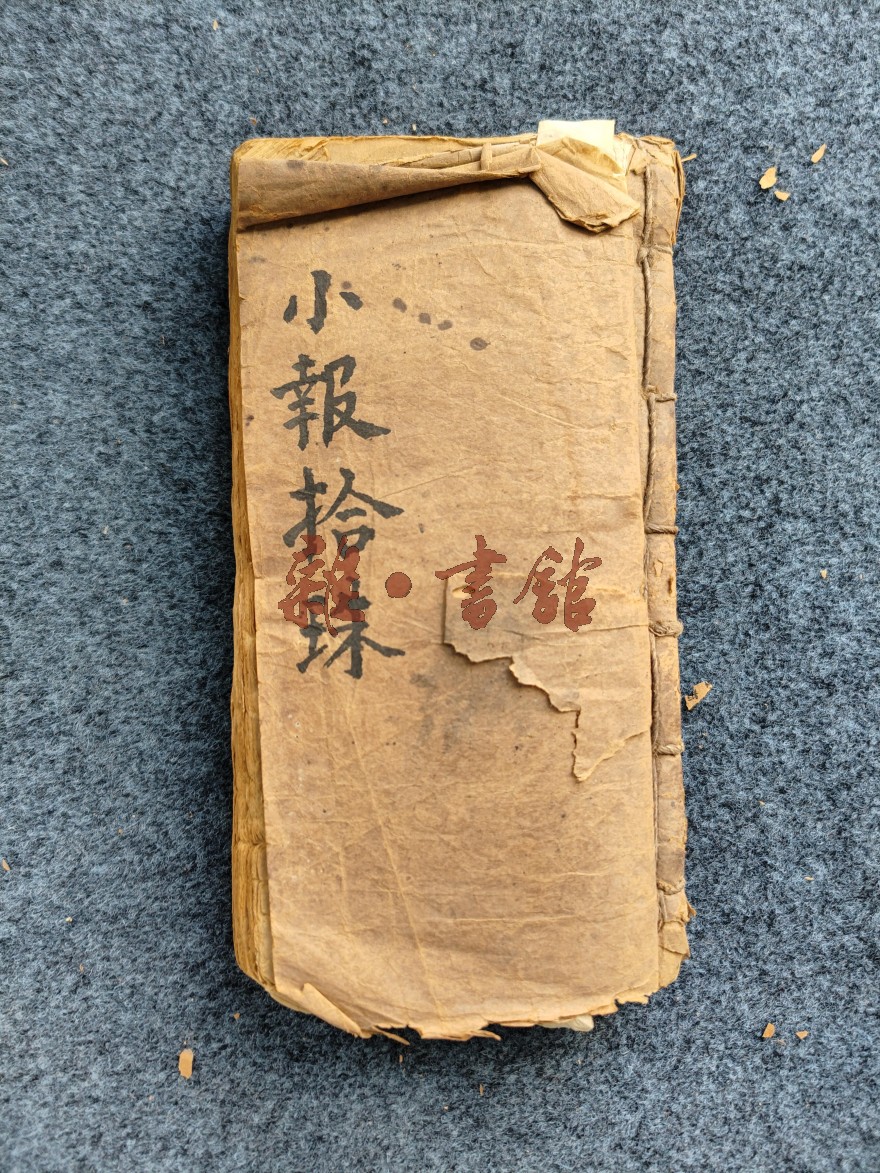 小報拾珠
雜·書館